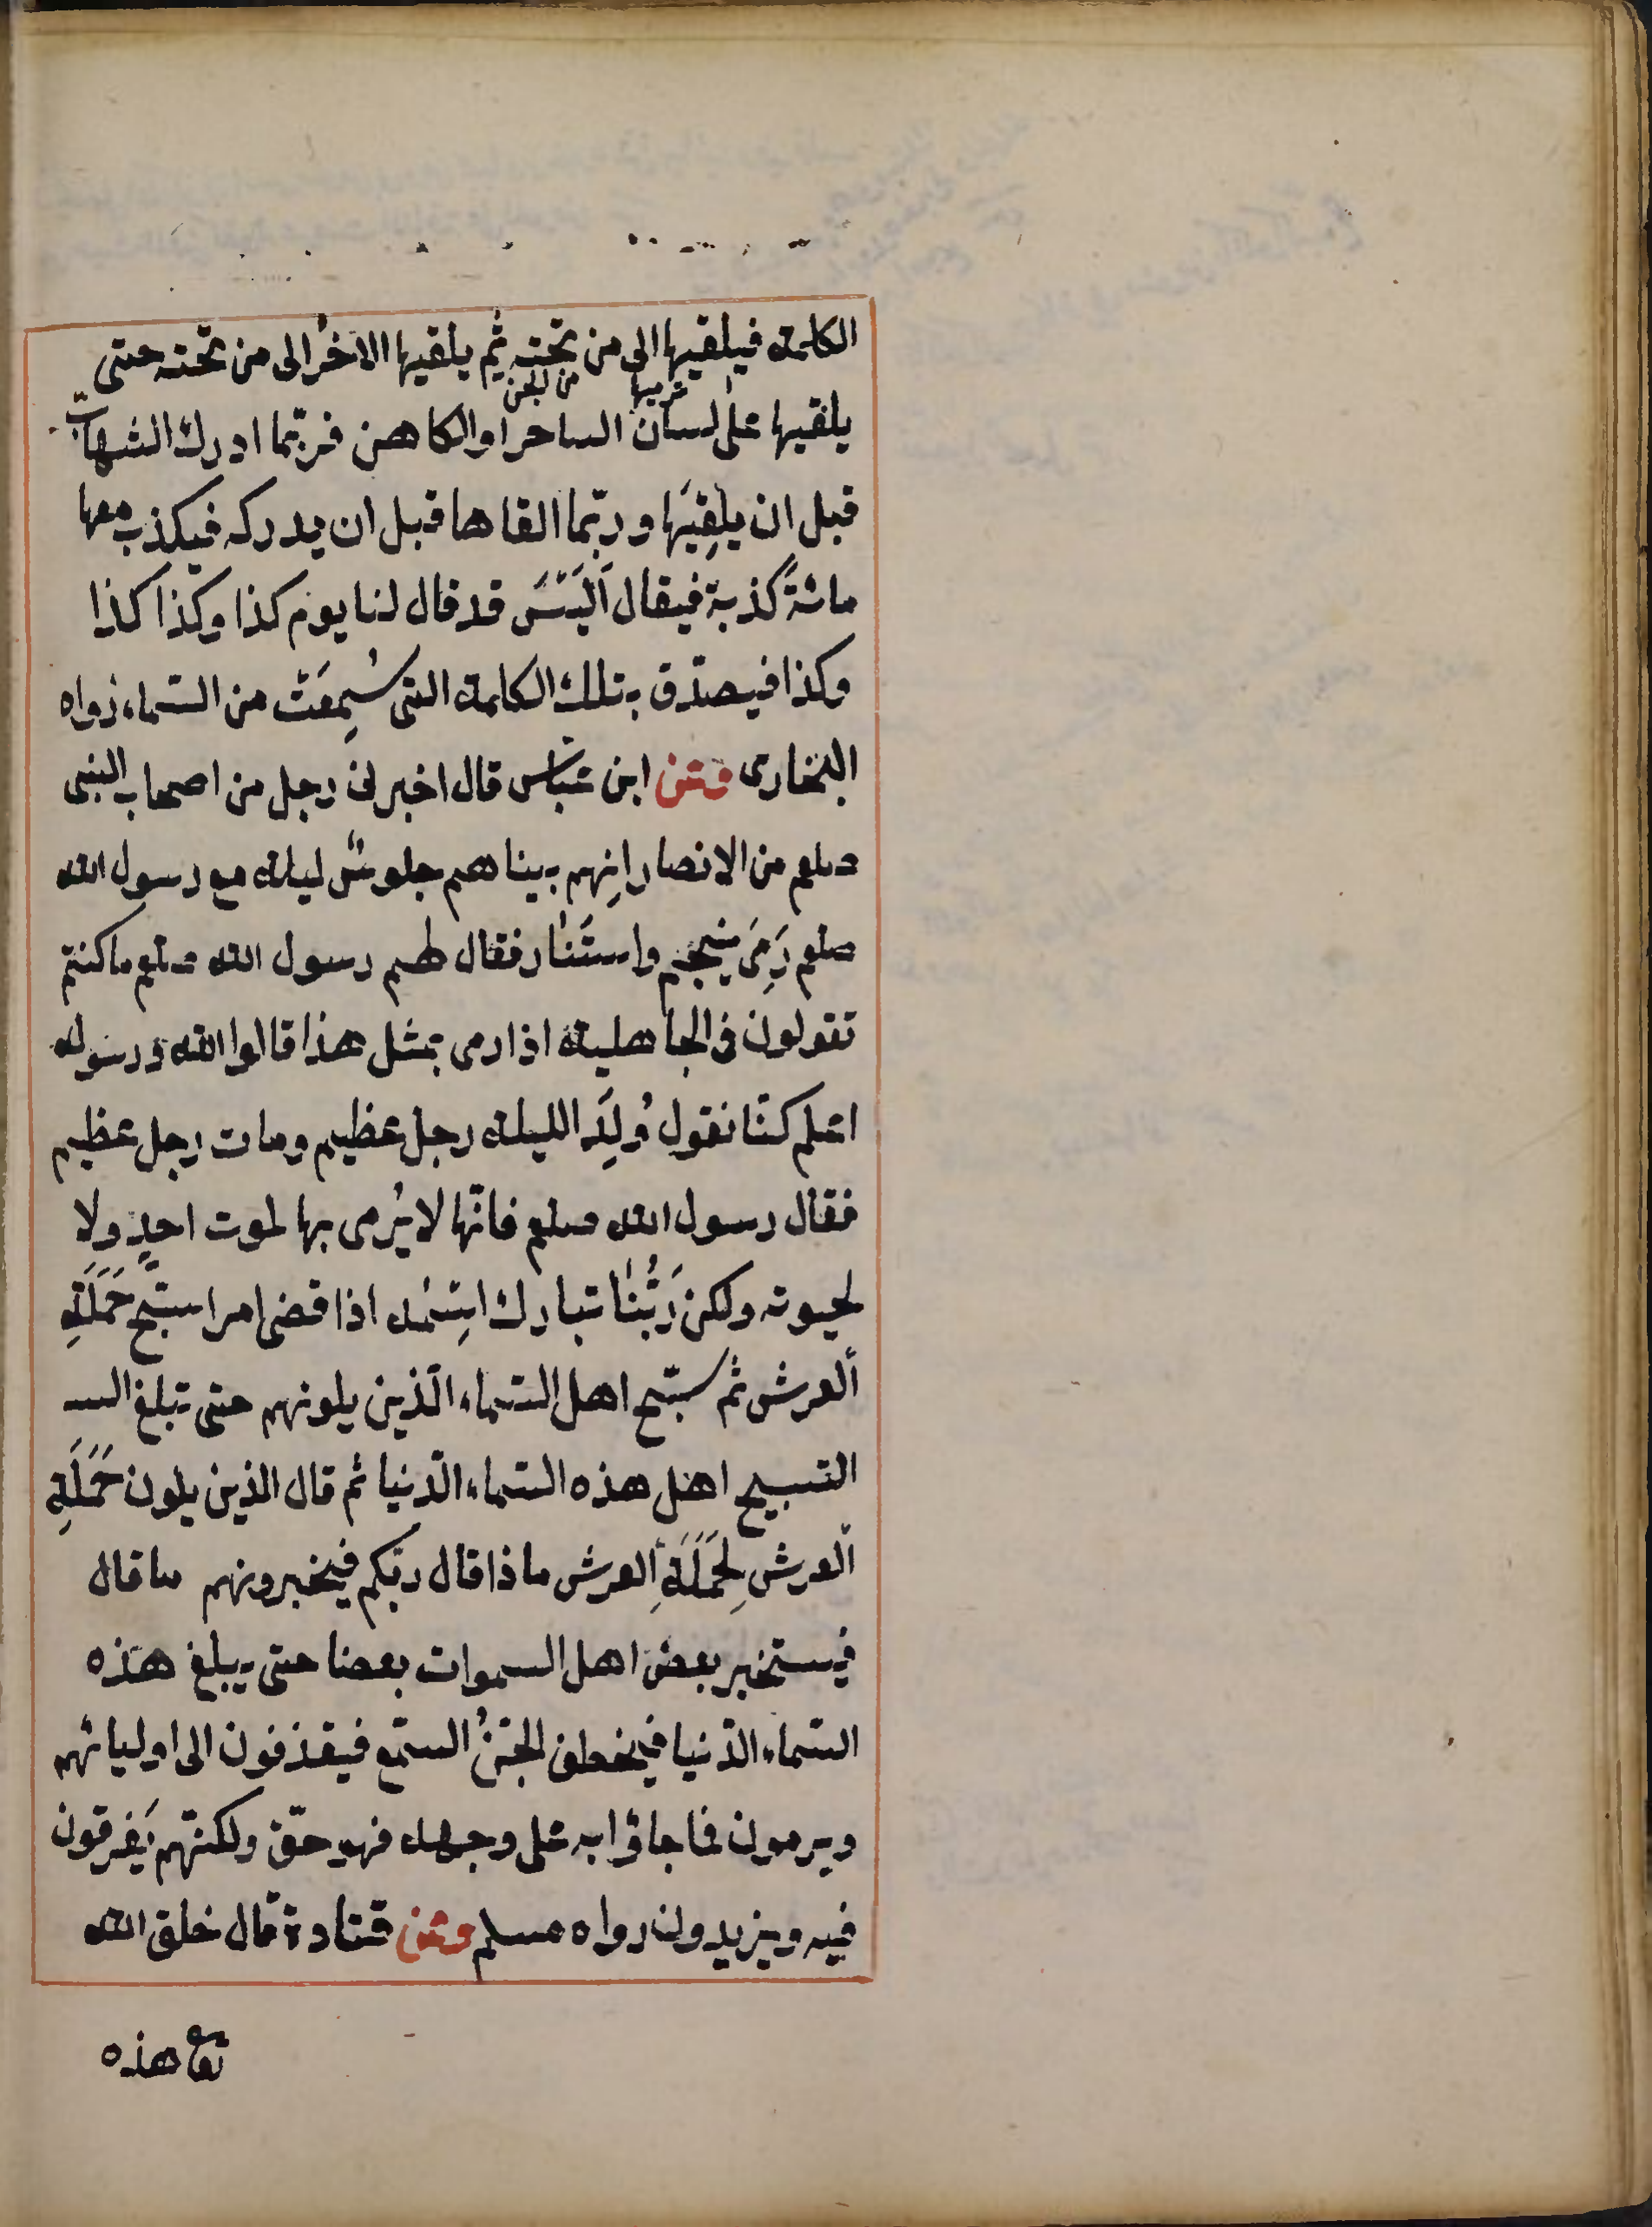 الكلمة فيلقيها الى من تحته ثم يلقيها الاخرُ الى من تحته حتى
من الجن
يلقيها على لسان الساحر او الكاهن فربّما ادرك الشهابُ
قبل ان يلقِيَها وربّما القاها قبل ان يدركه فيكذب معها
مائةَ كذبة فيقال اَلَيْسَ قد قال لنا يوم كذا وكذا كذا
وكذا فيصدّق بتلك الكلمة التى سُمِعَتْ من السّماء رواه
البخارى وعن ابن عبّاس قال اخبرنى رجل من اصحاب النبى
صلعم من الانصار انهم بيناهم جلوسٌ ليلة مع رسول الله
صلعم رَمِىَ بنجم واستَنَار فقال لهم رسول الله صلعم ما كنتم
تقولون فى الجاهلية اذا رمى بمثل هذا قالوا الله ورسوله
اعلم كنّا نقول وُلِدَ الليلة رجل عظيم ومات رجل عظيم
فقال رسول الله صلعم فانّها لا يُرمى بها لموت احدٍ ولا
لحيوته ولكن رَبُّنَا تبارك اسِمُه اذا قضى امرا سبّح حَمَلَةِ
العرش ثم سبّح اهل السّماء الّذين يلونهم حتى تبلغ الس
التسبيح اهل هذه السّماء الدّنيا ثم قال الذين يلون حَمَلَةِ
العرش لِحَمَلَةِ العرش ماذا قال ربّكم فيخبرونهم ما قال
فيستخبر بعض اهل السموات بعضا حتى يبلغ هذه
السّماء الدّنيا فيخطف الجّنُ السّمع فيقذفون الى اوليائهم
ويرمون فما جاؤا به على وجهه فهو حقّ ولكنّهم يَفرقون
فيه ويزيدون رواه مسلم وعن قتادة قال خلق الله
تع هذه